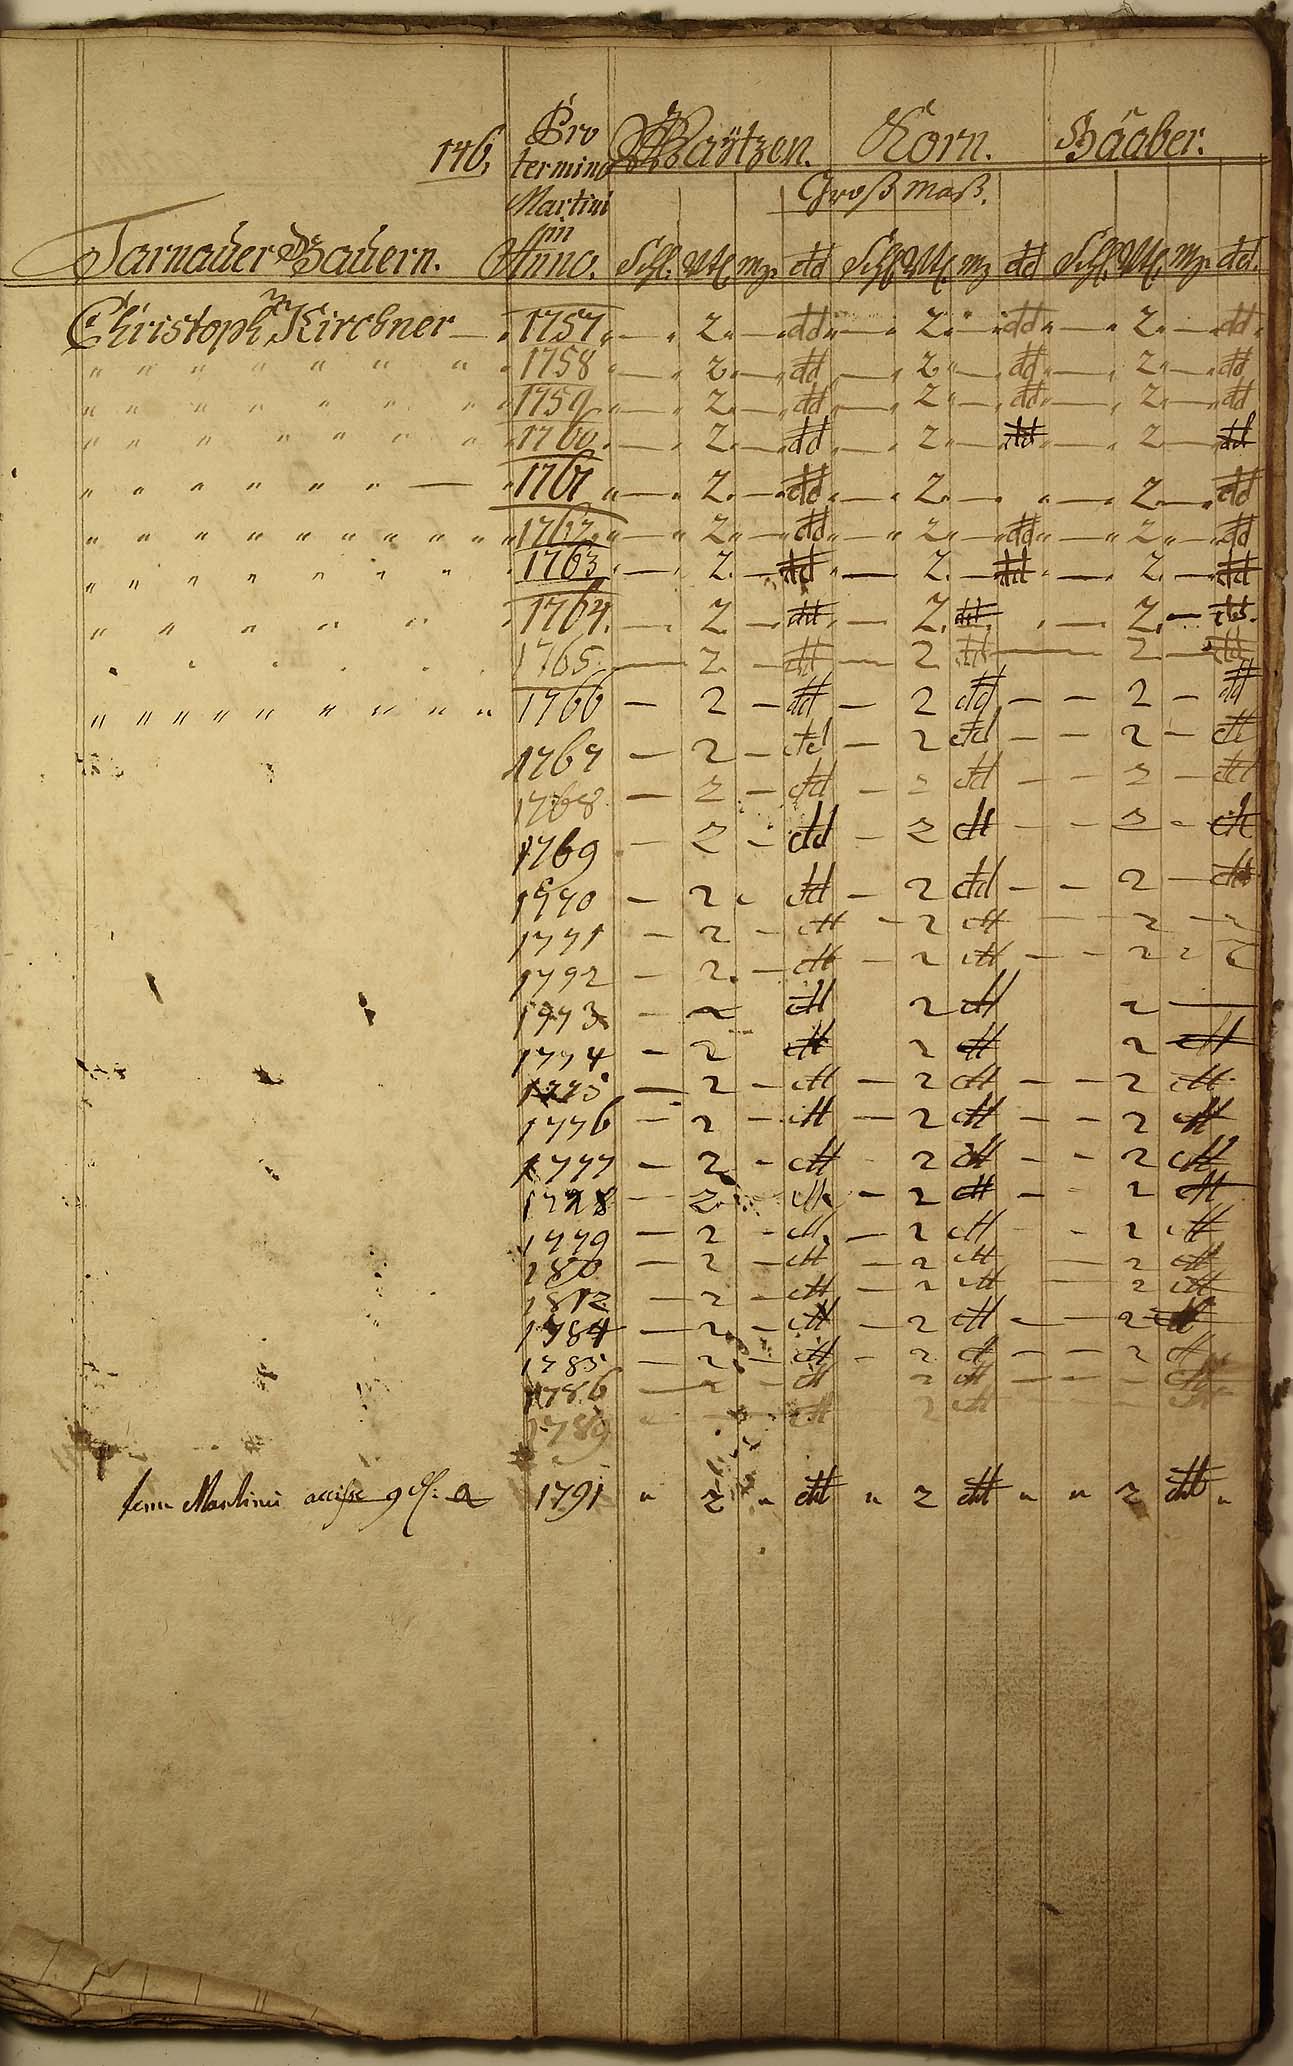 146.
Pro termino Martini in Anno.
Waÿtzen. Korn. Haaber.
Groß maß.
Tarnauer Bauern. Schfl. Vtl. Mz. dd Schfl. Vtl. Mz dd Schfl. Vtl. Mz. dd.
Christoph Kirchner — 1757 — 2 — dd — 2 — dd — 2 — dd
" " " " " " " 1758 — 2 — dd — 2 — dd — 2 — dd
" " " " " " " " 1759 — 2 — dd — 2 — dd — 2 — dd
" " " " " " " " 1760 — 2 — dd — 2 — dd — 2 — dd
" " " " " " — 1761 — 2 — dd — 2 — — 2 — dd
" " " " " " " " " " " " 1762 — 2 — dd — 2 — dd — 2 — dd
" " " " " " " 1763 — 2 — dd — 2 — dd — 2 — dd
" " " " " 1764 — 2 — dd — 2 dd — 2 — dd
" " " " " " 1765 — 2 — dd — 2 dd — 2 — dd
" " " " " " " " " " 1766 — 2 — dd — 2 dd — — 2 — dd
1767 — 2 — dd — 2 dd — — 2 — dd
1768 — 2 — dd — 2 dd — — 2 — dd
1769 — 2 — dd — 2 dd — — 2 — dd
1770 — 2 dd — 2 dd — — 2 — dd
1771 — 2 — dd — 2 dd — — 2 —
1772 — 2 — dd — 2 dd — — 2
1773 — 2 dd 2 dd 2 —
1774 — 2 dd 2 dd 2 dd
1775 — 2 — dd — 2 dd — — 2 dd
1776 — 2 — dd — 2 dd — — 2 dd
1777 — 2 — dd - 2 dd — — 2 dd
1778 — 2 dd — 2 dd — 2 dd
1779 — 2 - dd — 2 dd - 2 dd
1780 — 2 — dd — 2 dd — 2 dd
2 — dd — 2 dd — 2 dd
1784 — 2 — dd — 2 dd — — 2 dd
1785 — 2 — dd — 2 dd — — 2 dd
1786 — 2 — dd 2 dd — — dd
1789 — dd 2 dd — — dd
term Martini 1791 " 2 " dd " 2 dd " " 2 dd "